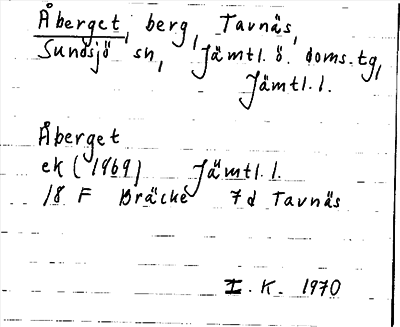 Åberget, berg, Tavnäs,
Sundsjö sn, Jämtl. ö. doms.tg,
Jämtl. l.
Åberget
ek (1969) Jämtl. l.
18 F Bräcke 7d Tavnäs
I. K. 1970